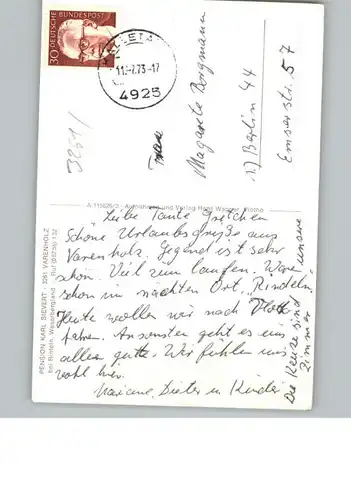 30 DEUTSCHE BUNDESPOST
11.-7.73-17
4925
3261/
Frau
Magarete Borgmann
1) Berlin 44
Emser str. 57
PENSION KARL SIEVERT · 3261 VARENHOLZ
bei Rinteln, Weserbergland Ruf (05755) 132
Aufnahme und Verlag Hans Wagner, Vlotho
Liebe Tante Gretchen
Schöne Urlaubsgrüße aus
Varenholz. Gegend ist sehr
schön. Viel zum laufen. Waren
schon im nächsten Ort "Rinteln.
Heute wollen wir nach Vlotho
fahren. Ansonsten geht es uns
allen gut. Wir fühlen uns
wohl hier.
Dieter u Kinder
Die Kreuze sind unsere
Zimmer!